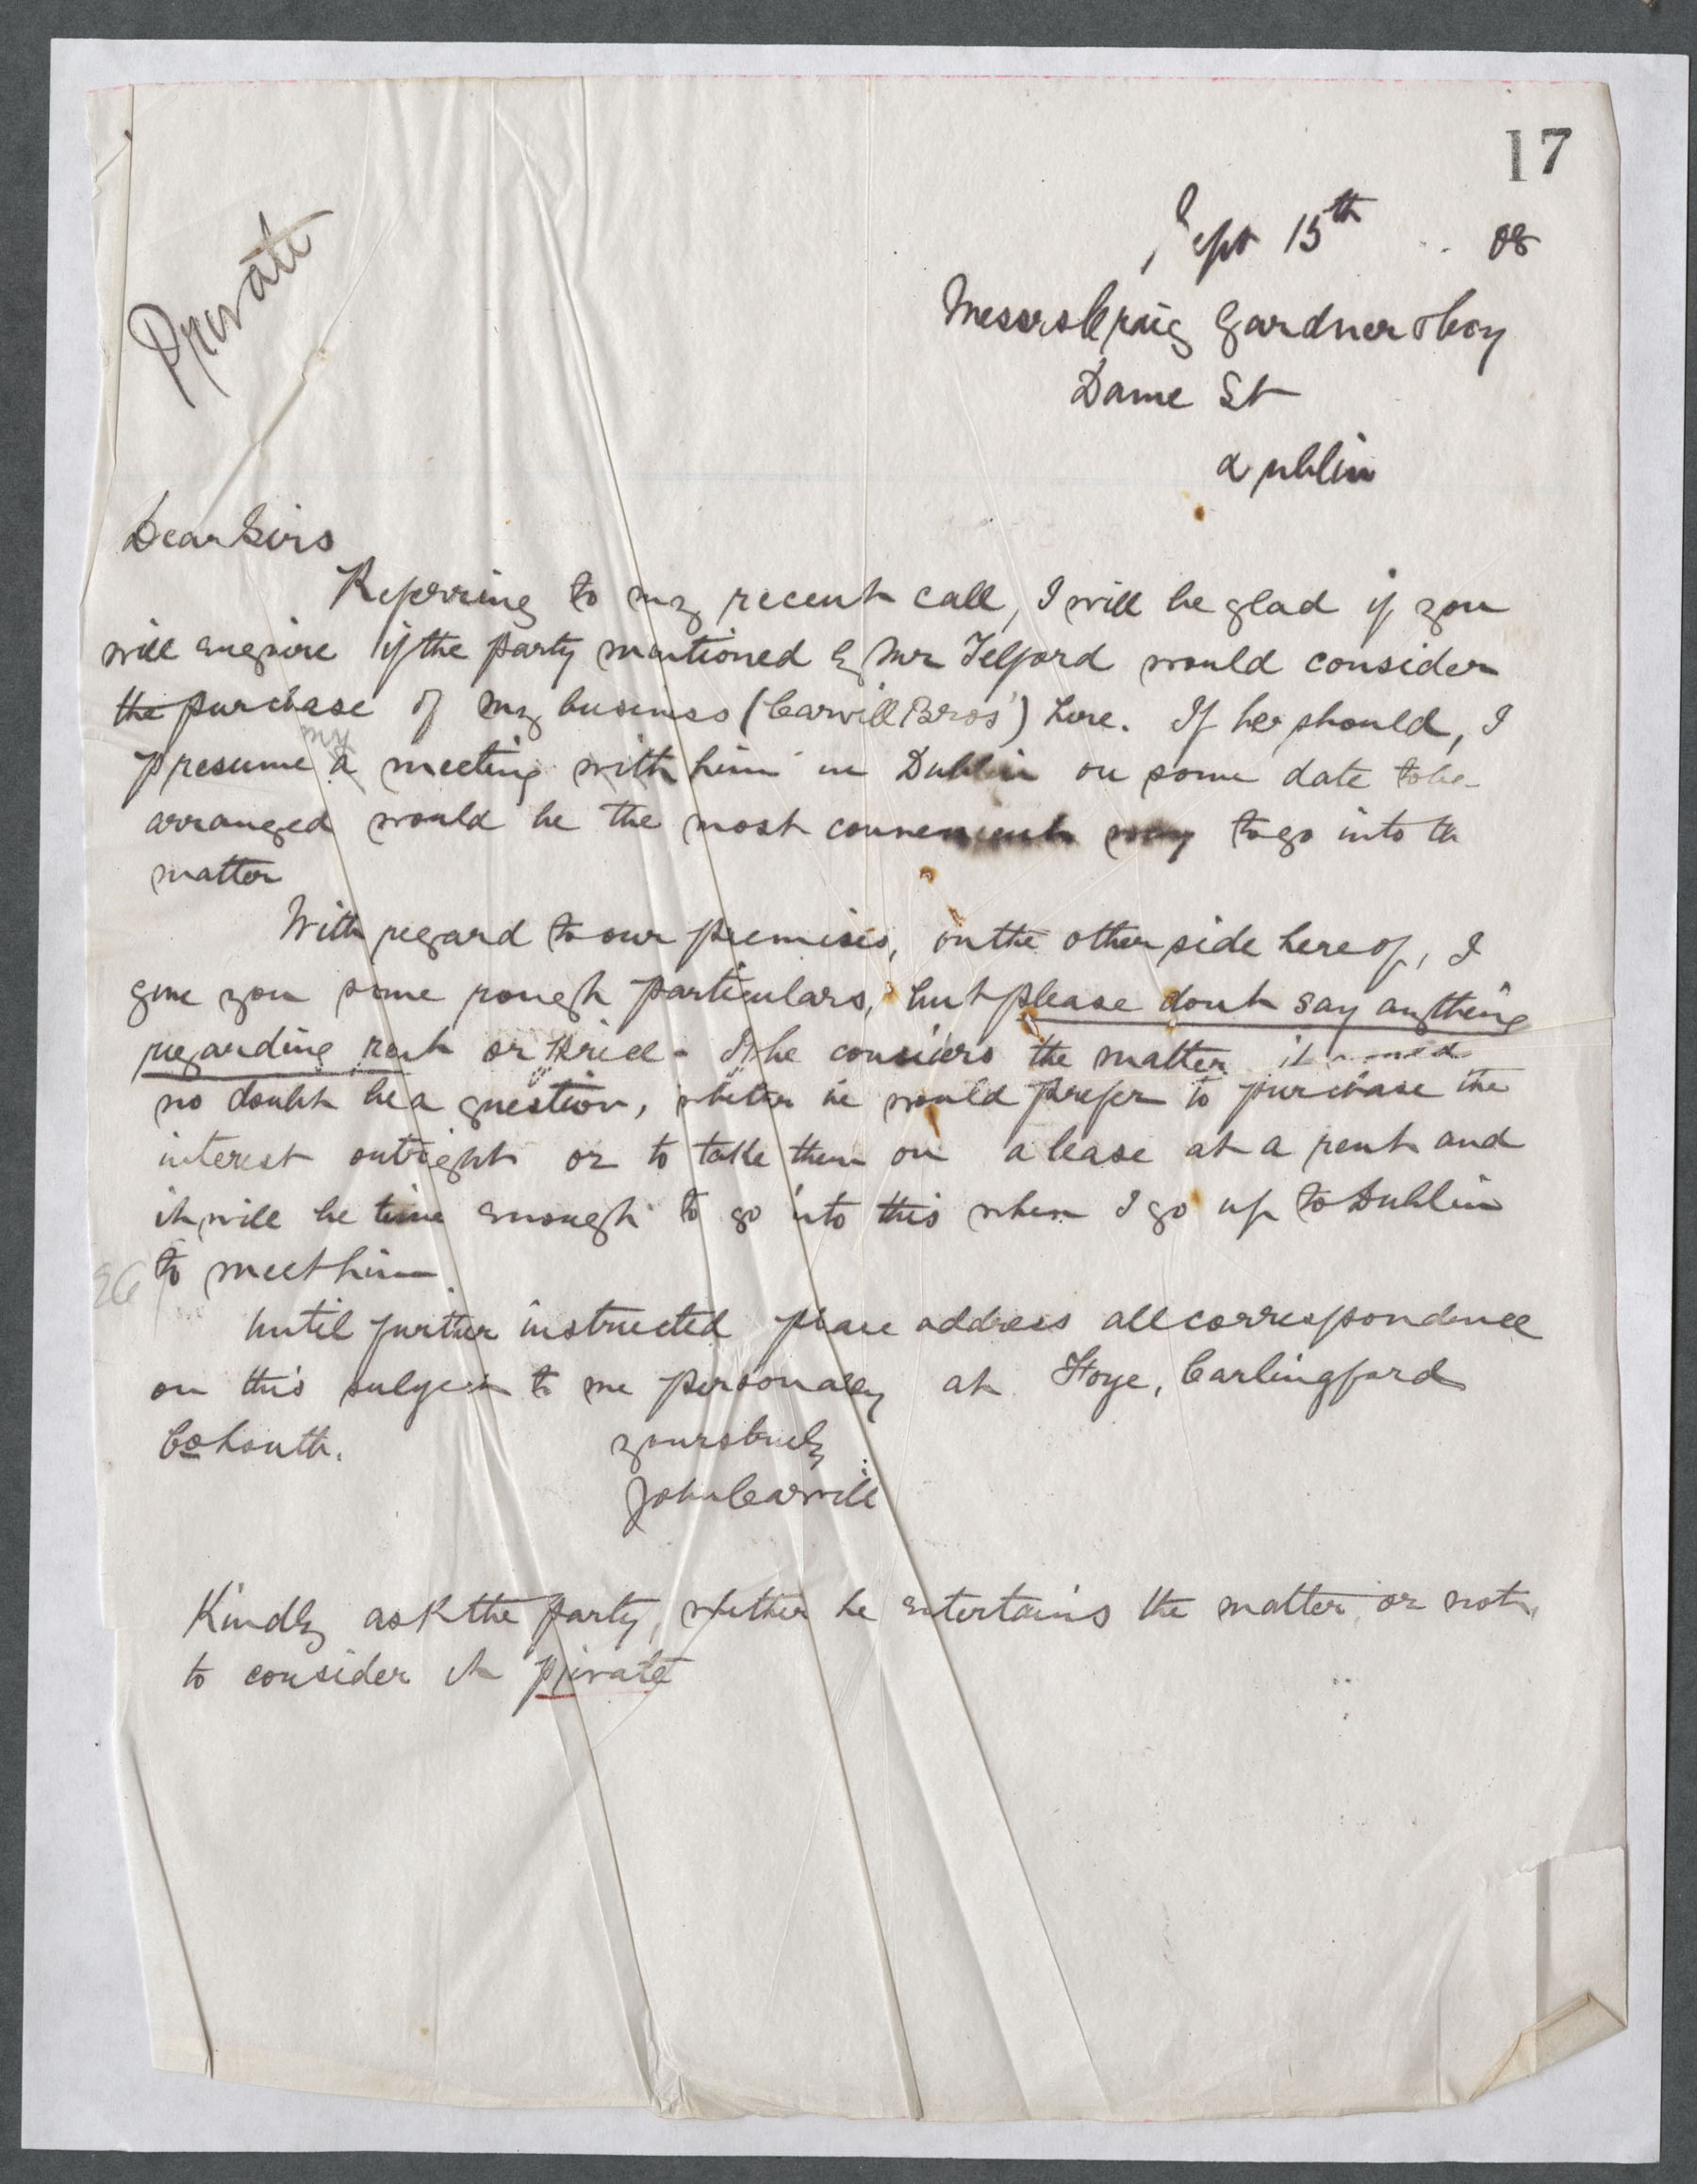 17
Private
Sept 15th 08
Messrs Craig Gardner & Coy
Dame St
Dublin
Dear Sirs
Referring to my recent call, I will be glad if you
will enquire if the party mentioned by Mr Telford would consider
the purchase of my business (Carvill Bros) here. If he should, I
my
presume a meeting with him in Dublin on some date to be
arranged would be the most convenient way to go into th
matter
With regard to our premises, on the other side hereof, I
give you some rough particulars, but please dont say anything
regarding rent or price - If he considers the matter it would
no doubt be a question, whether he would prefer to purchase the
interest outright or to take them on a lease at a rent and
it will be time enough to go into this when I go up to Dublin
to meet him
Until further instructed please address all correspondence
on this subject to me personally at Carlingford
Co Louth.
yours truly
John Carvill
Kindly ask the party, whether he entertains the matter or not,
to consider it private